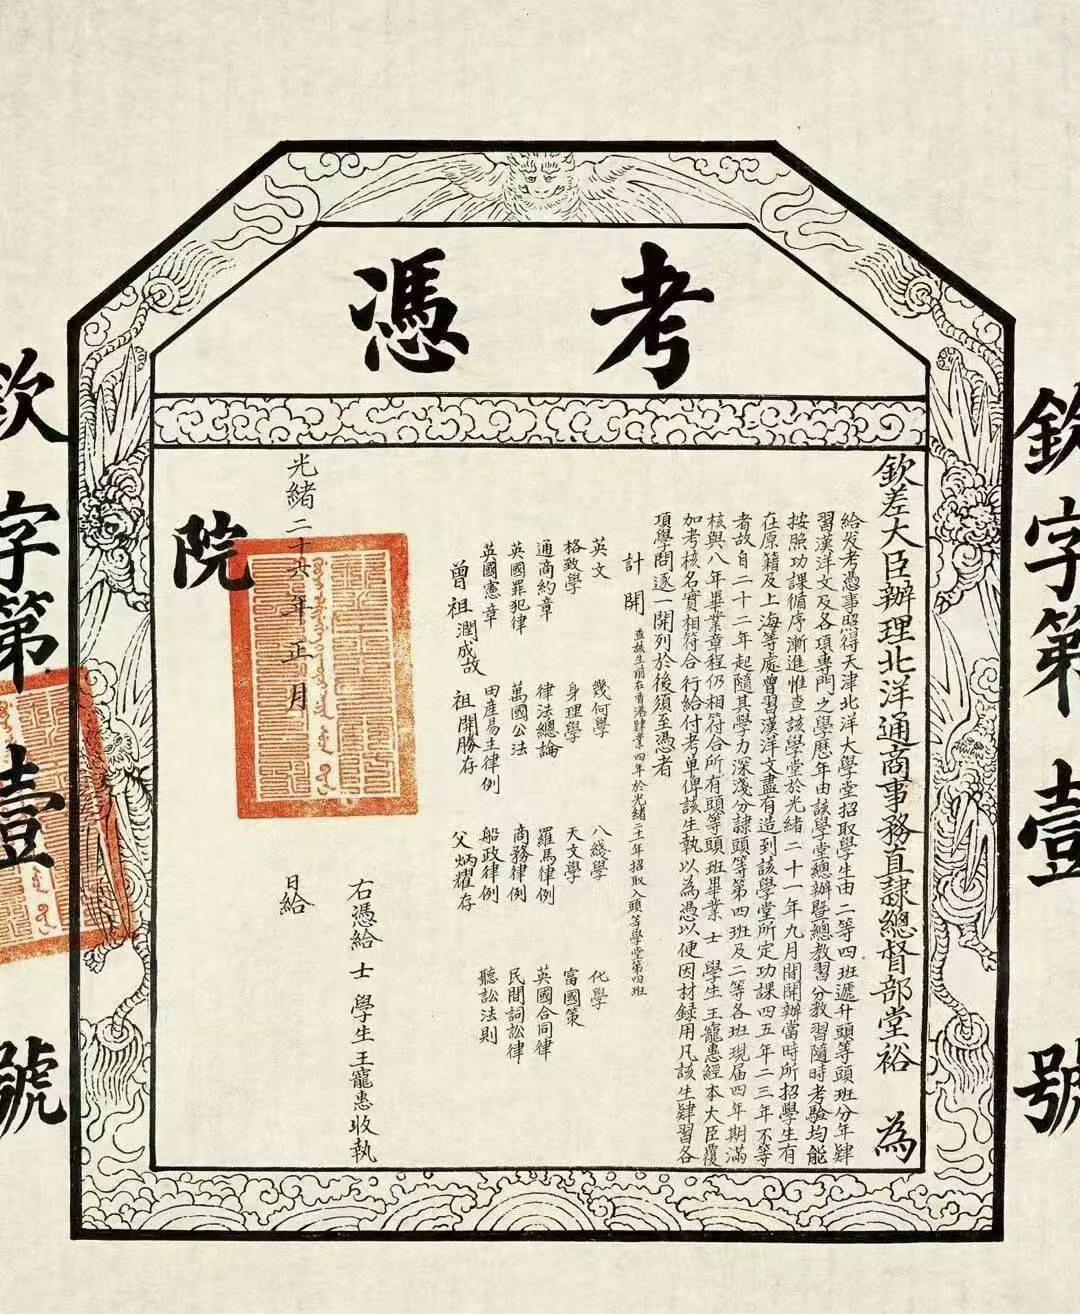 考憑
欽差大臣辦理北洋通商事務直隸總督部堂裕 為
給發考憑事照得天津北洋大學堂招取學生由二等四班遞升頭等頭班分年肄
習漢洋文及各項專門之學歷年由該學堂總辦暨總教習分教習隨時考驗均能
按照功課循序漸進惟查該學堂於光緒二十一年九月間開辦當時所招學生有
在原籍及上海等處曾習漢洋文盡有造到該學堂所定功課四五年二三年不等
者故自二十二年起隨其學力深淺分隸頭等第四班及二等各班現屆四年期滿
核與八年畢業章程仍相符合所有頭等頭班畢業士 學生王寵惠經本大臣覆
加考核名實相符合行給付考單俾該生執以為憑以便因材錄用凡該生肄習各
項學問逐一開列於後須至憑者
計開 查該生前在香港肄業四年於光緒二十一年招取入頭等學堂第四班
英文 幾何學 八綫學 化學
格致學 身理學 天文學 富國策
通商約章 律法總論 羅馬律例 英國合同律
英國罪犯律 萬國公法 商務律例 民間詞訟律
英國憲章 田產易主律例 船政律例 聽訟法則
曾祖潤成故 祖開勝存 父炳耀存
右憑給士 學生王寵惠收執
光緒二十六年正月 日給
院
欽字第壹號
欽字第壹號